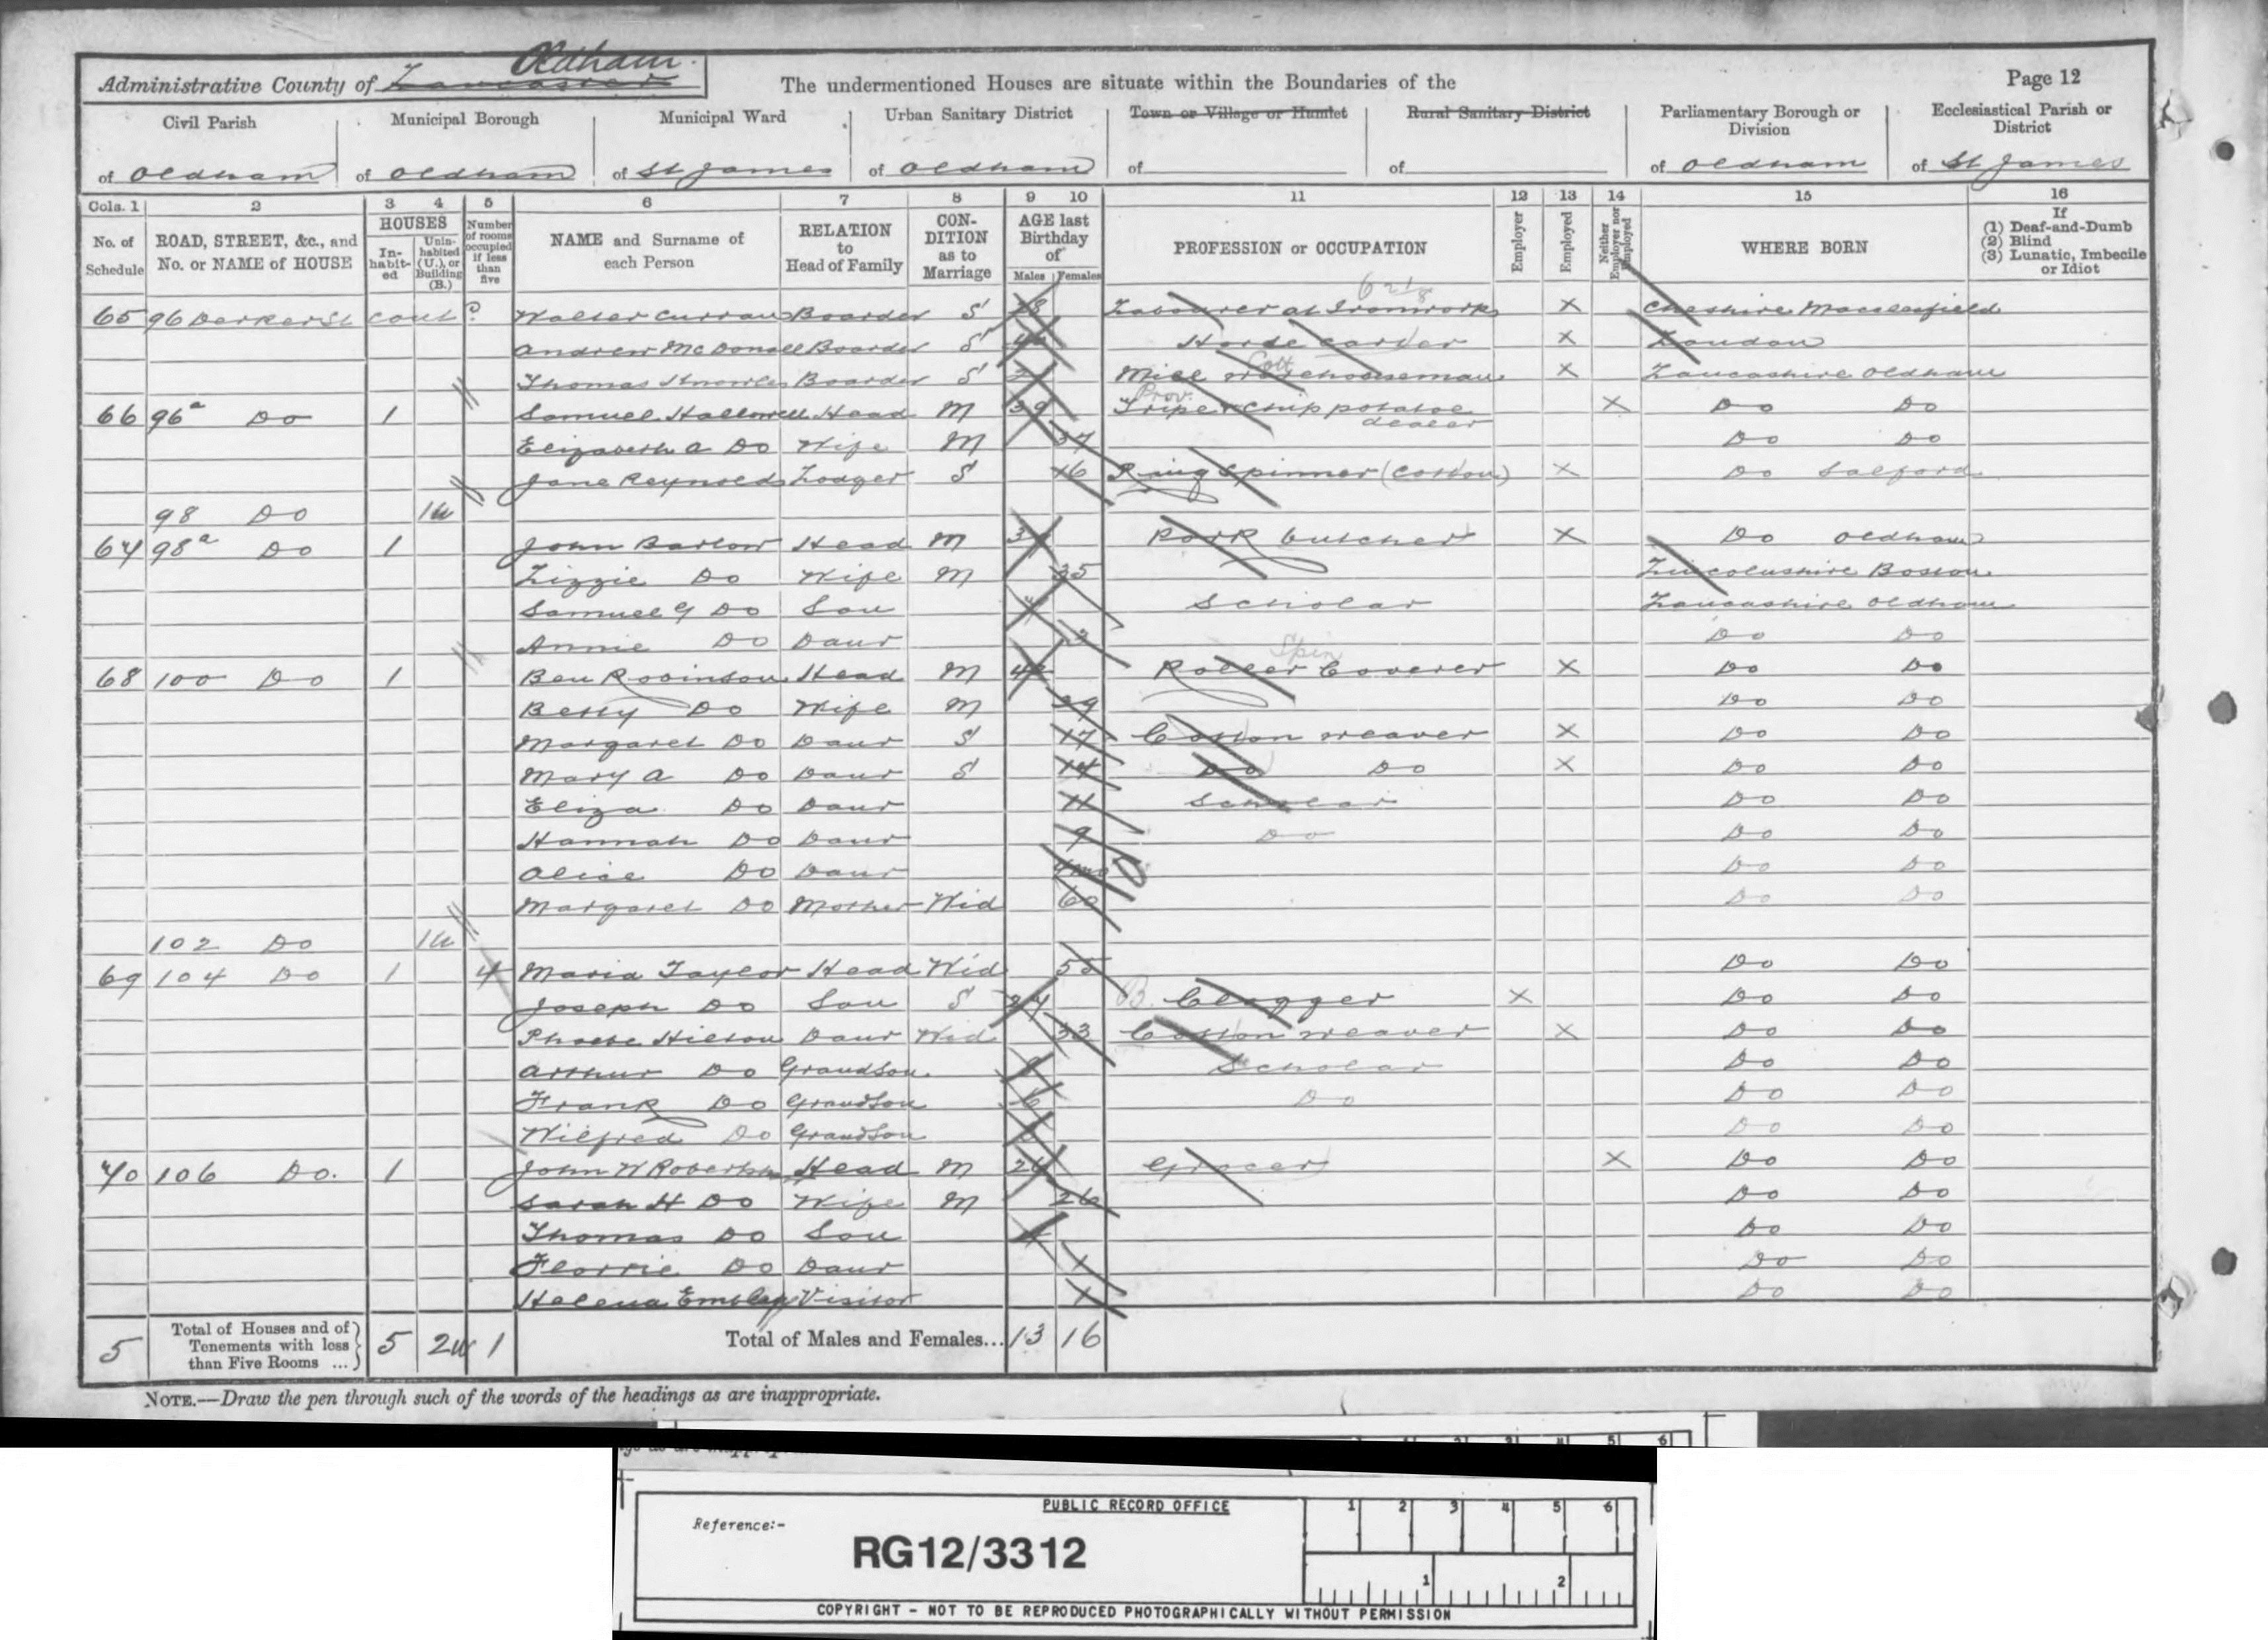 Oldham.
Administrative County of Lancaster The undermentioned Houses are situate within the Boundaries of the Page 12
Civil Parish Municipal Borough Municipal Ward Urban Sanitary District Town or Village or Hamlet Rural Sanitary District Parliamentary Borough or Division Ecclesiastical Parish or District
of Oldham of Oldham of St James of Oldham of of of Oldham of St James
Cols. 1 2 3 4 5 6 7 8 9 10 11 12 13 14 15 16
No. of Schedule ROAD, STREET, &c., and No. or NAME of HOUSE HOUSES In-habit-ed Unin-habited (U.), or Building (B.) Number of rooms occupied if less than five NAME and Surname of each Person RELATION to Head of Family CON-DITION as to Marriage AGE last Birthday of Males Females PROFESSION or OCCUPATION Employer Employed Neither Employer nor Employed WHERE BORN If (1) Deaf-and-Dumb (2) Blind (3) Lunatic, Imbecile or Idiot
65 96 Derker St cont Walter Curran Boarder S Labourer at Ironworks X Cheshire Macclesfield
Andrew McDonell Boarder S Horse carder X London
Thomas Knowles Boarder S Cott Mill warehouseman X Lancashire Oldham
66 96a Do 1 Samuel Hallowell Head M 39 Prov. Tripe & chip potatoe dealer X Do Do
Elizabeth A Do Wife M 37 Do Do
Jane Reynolds Lodger S 16 Ring Spinner (Cotton) X Do Salford
98 Do 1u
67 98a Do 1 John Barlow Head M Pork butcher X Do Oldham
Lizzie Do Wife M 35 Lincolnshire Boston
Samuel G Do Son Scholar Lancashire Oldham
Annie Do Daur Do Do
68 100 Do 1 Ben Robinson Head M Spin Roller Coverer X Do Do
Betty Do Wife M 39 Do Do
Margaret Do Daur S 17 Cotton weaver X Do Do
Mary A Do Daur S 14 Do Do X Do Do
Eliza Do Daur 11 Scholar Do Do
Hannah Do Daur 9 Do Do Do
Alice Do Daur Do Do
Margaret Do Mother Wid 60 Do Do
102 Do 1u
69 104 Do 1 4 Maria Taylor Head Wid 55 Do Do
Joseph Do Son S 24 B. Clogger X Do Do
Phoebe Hilton Daur Wid 33 Cotton weaver X Do Do
Arthur Do Grandson Scholar Do Do
Frank Do Grandson 6 Do Do Do
Wilfred Do Grandson Do Do
70 106 Do. 1 John W Robertson Head M 26 Grocer X Do Do
Sarah H Do Wife M 26 Do Do
Thomas Do Son Do Do
Florrie Do Daur Do Do
Helena Emsley Visitor Do Do
5 Total of Houses and of Tenements with less than Five Rooms ... 5 2u 1 Total of Males and Females... 13 16
NOTE.—Draw the pen through such of the words of the headings as are inappropriate.
PUBLIC RECORD OFFICE 1 2 3 4 5 6
Reference:-
RG12/3312
1 2
COPYRIGHT - NOT TO BE REPRODUCED PHOTOGRAPHICALLY WITHOUT PERMISSION